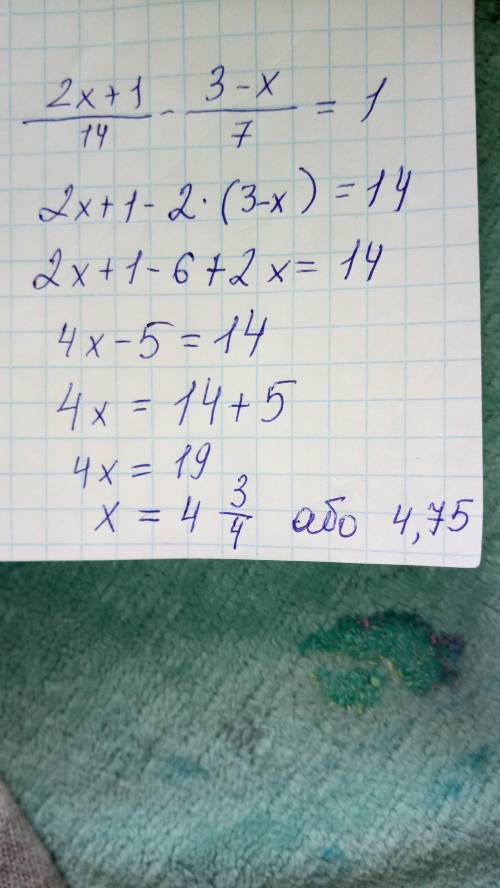 2x+1/14 - 3-x/7 = 1
2x+1-2·(3-x)=14
2x+1-6+2x=14
4x-5=14
4x=14+5
4x=19
x=4 3/4 або 4,75